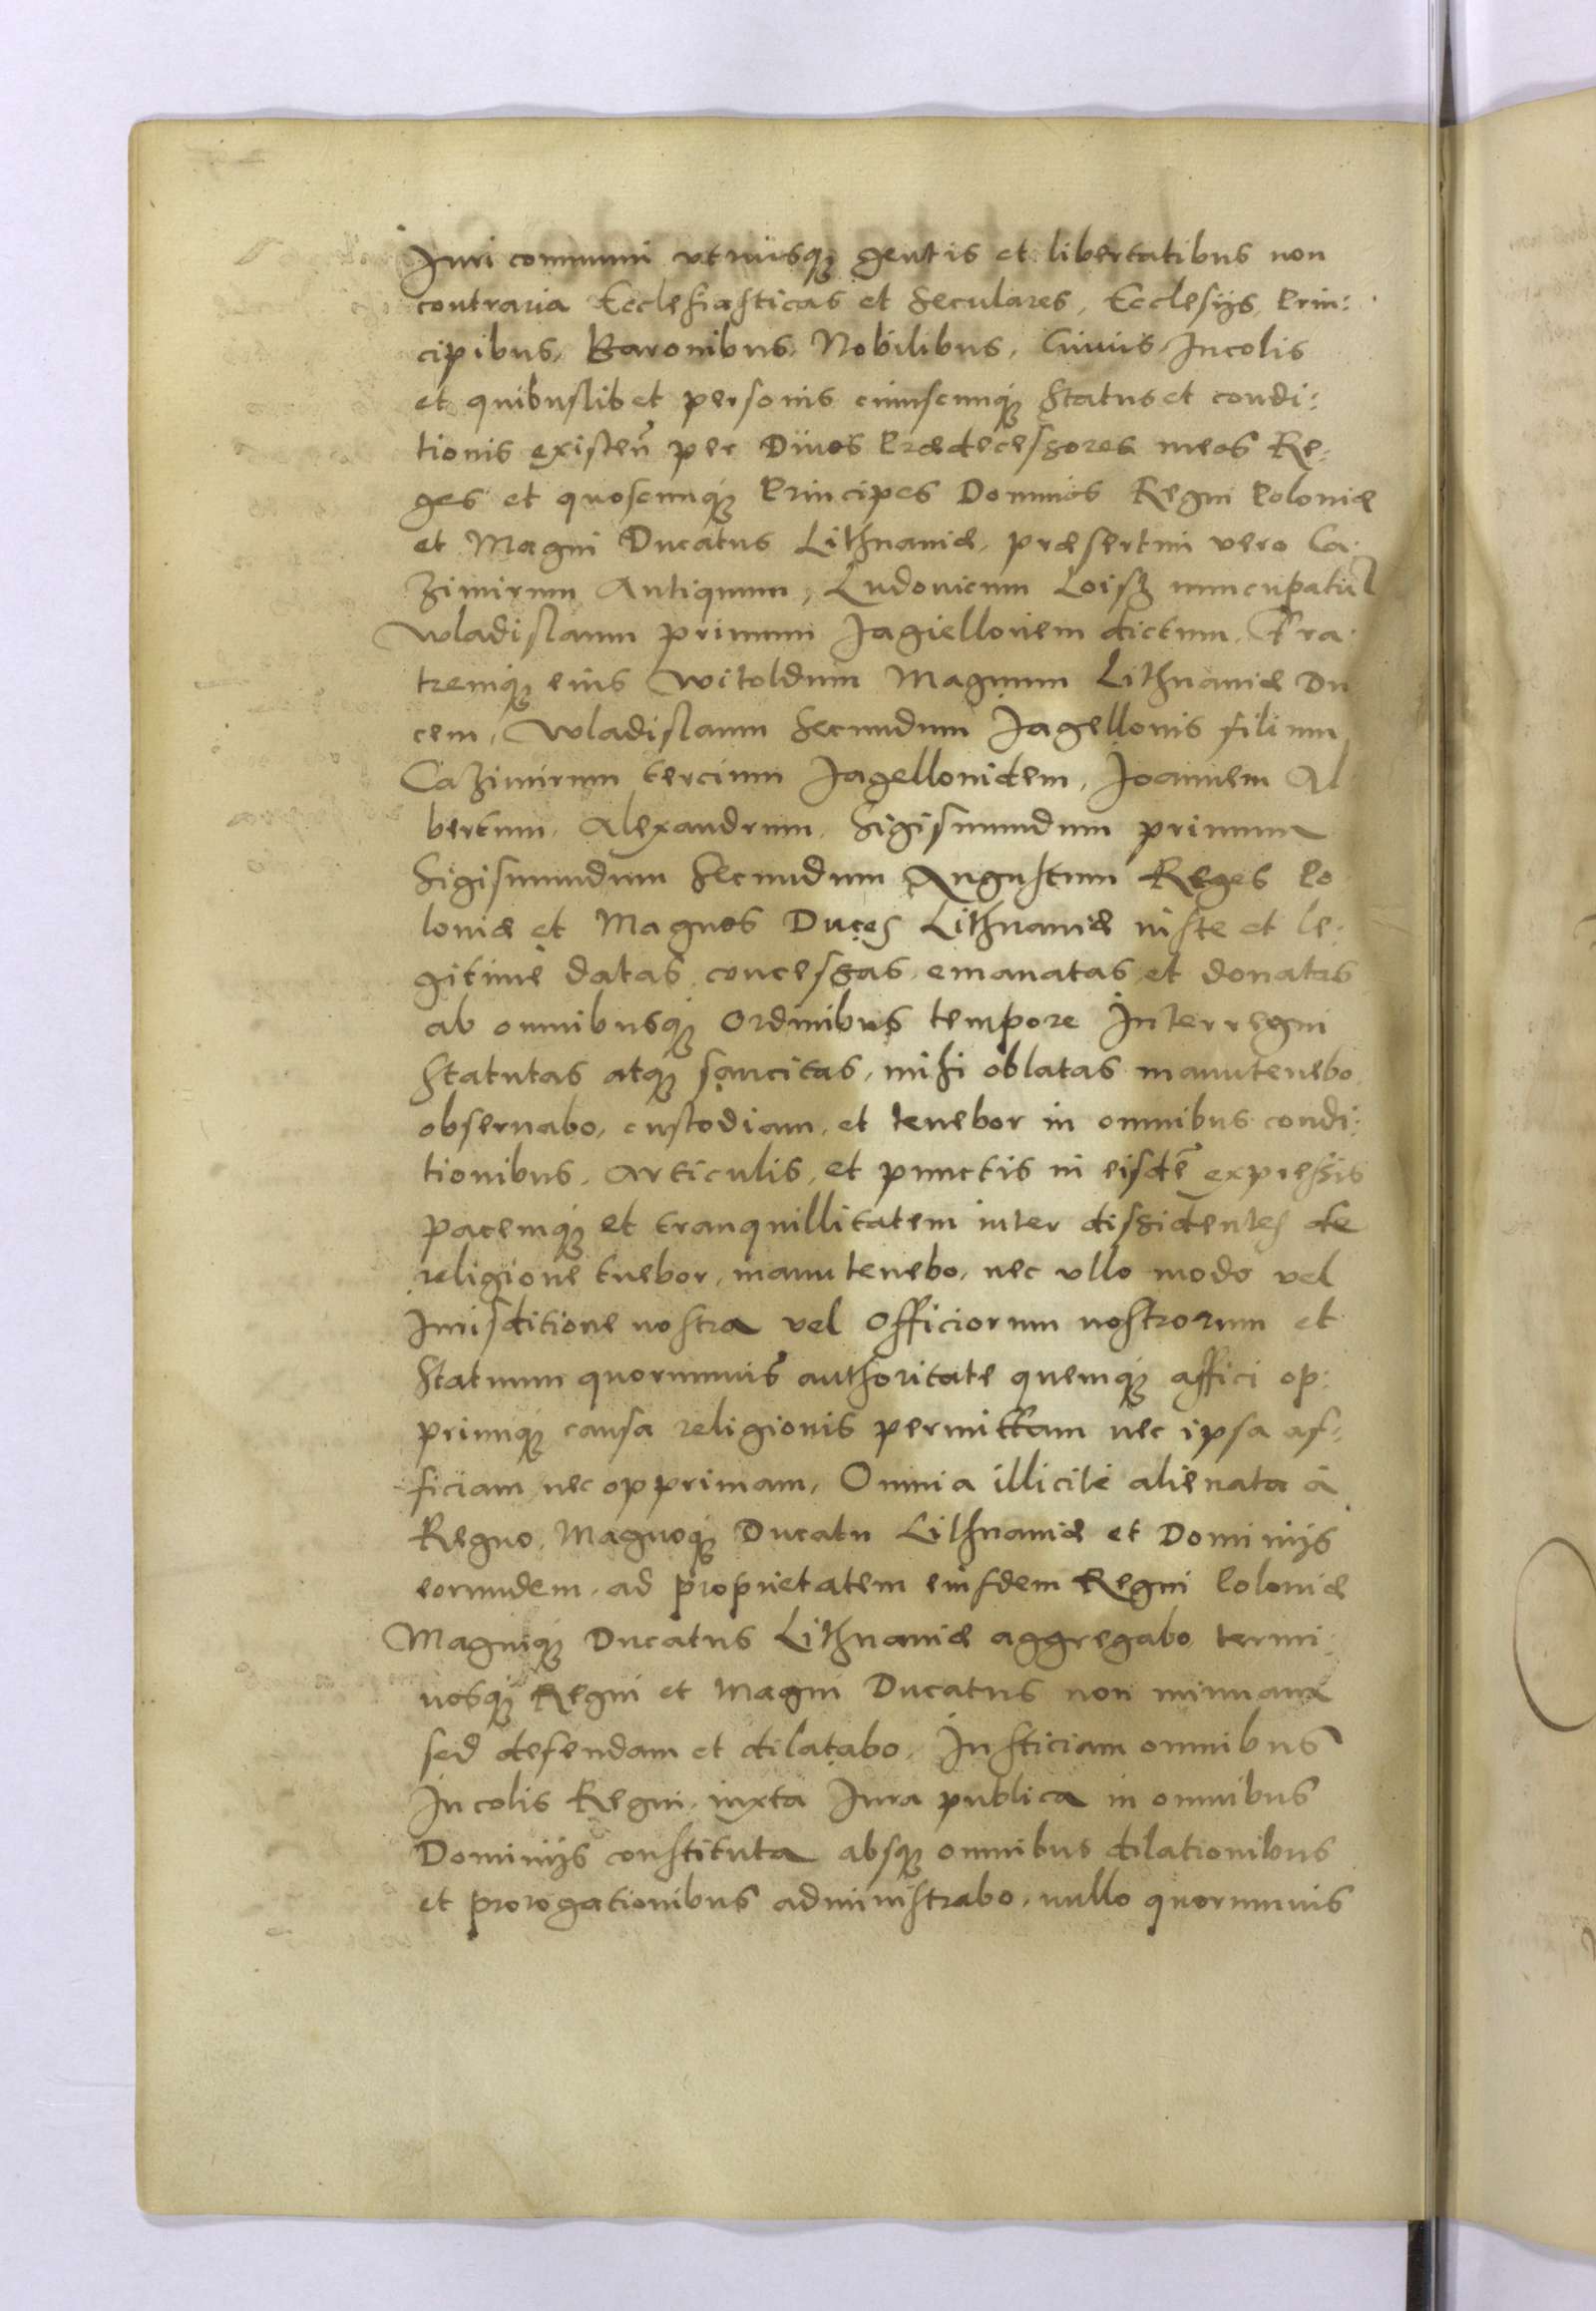 Juri communi utriusq3 gentis et libertatibus non
contraria Ecclesiasticas et seculares, Ecclesijs, Prin:
cipibus, Baronibus, Nobilibus, Civiis, Incolis
et quibuslibet personis cuiuscunq3 status et condi:
tionis existen̄ per Divos Prædecessores meos Re:
ges et quoscunq3 Principes Dominos Regni Poloniæ
et Magni Ducatus Lithuaniæ, præsertim vero Ca:
zimirum Antiquum, Ludovicum Loisz nuncupatū
Wladislaum primum Jagiellonem dictum, Fra:
tremq3 eius Witoldum Magnum Lithuaniæ Du
cem, Wladislaum secundum Jagellonis filium
Cazimirum tercium Jagellonidem, Joannem Al
bertum, Alexandrum, Sigismundum primum
Sigismundum Secundum Augustum Reges Po
loniæ et Magnos Duces Lithuaniæ iuste et le:
gitime datas, concessas, emanatas, et donatas
ab omnibusq3 Ordinibus tempore Interregni
statutas atq3 sancitas, mihi oblatas manutenebo,
observabo, custodiam, et tenebor in omnibus condi:
tionibus, articulis, et punctis in eisdē expressis
pacemq3 et tranquillitatem inter dissidentes de
religione tuebor, manu tenebo, nec ullo modo vel
Jurisditione nostra vel Officiorum nostrorum et
statuum quorumvis authoritate quemq3 affici op:
primiq3 causa religionis permittam nec ipsa af:
ficiam nec opprimam, Omnia illicitè alienata à
Regno, Magnoq3 Ducatu Lithuaniæ et Dominijs
eorundem, ad proprietatem eiusdem Regni Poloniæ
Magniq3 Ducatus Lithuaniæ aggregabo, termi:
nosq3 Regni et Magni Ducatus non minuam
sed defendam et dilatabo, Justiciam omnibus
Incolis Regni, iuxta Jura publica in omnibus
Dominijs constituta absq3 omnibus dilationibus
et prorogationibus administrabo, nullo quorumvis